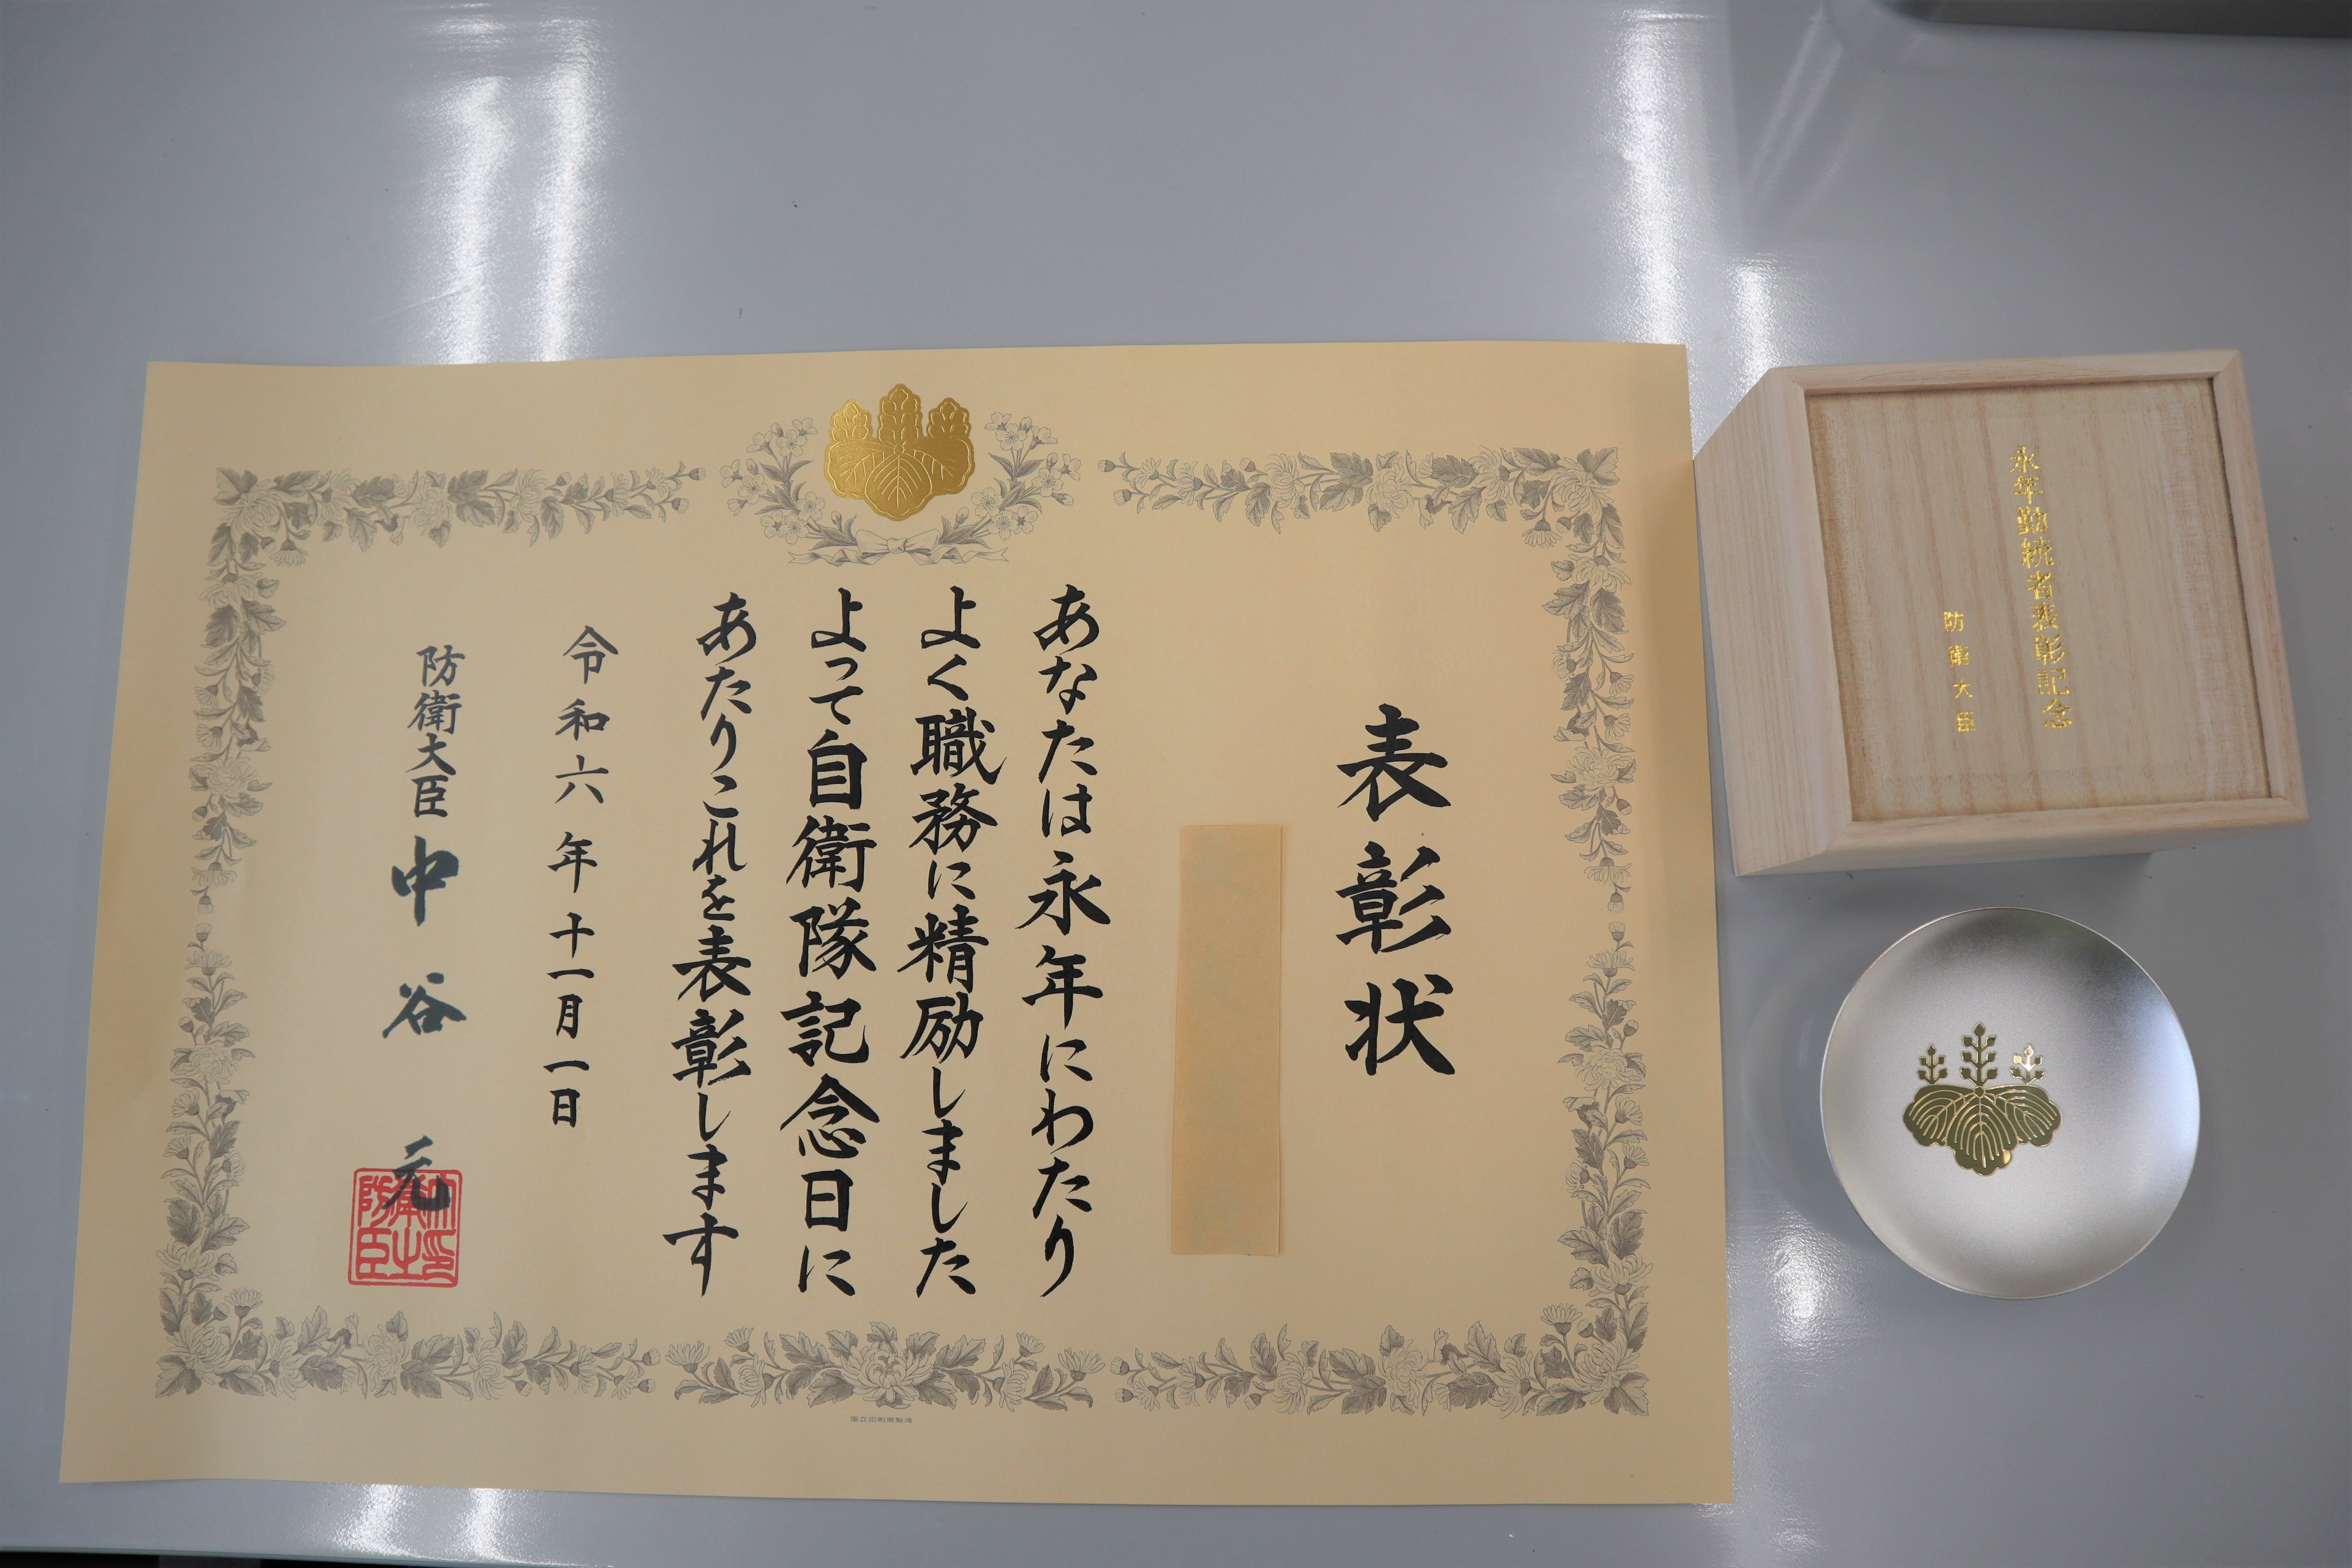 表彰状
あなたは永年にわたり
よく職務に精励しました
よって自衛隊記念日に
あたりこれを表彰します
令和六年十一月一日
防衛大臣 中谷 元
防衛大臣之印
国立印刷局製造
永年勤続者表彰記念
防衛大臣